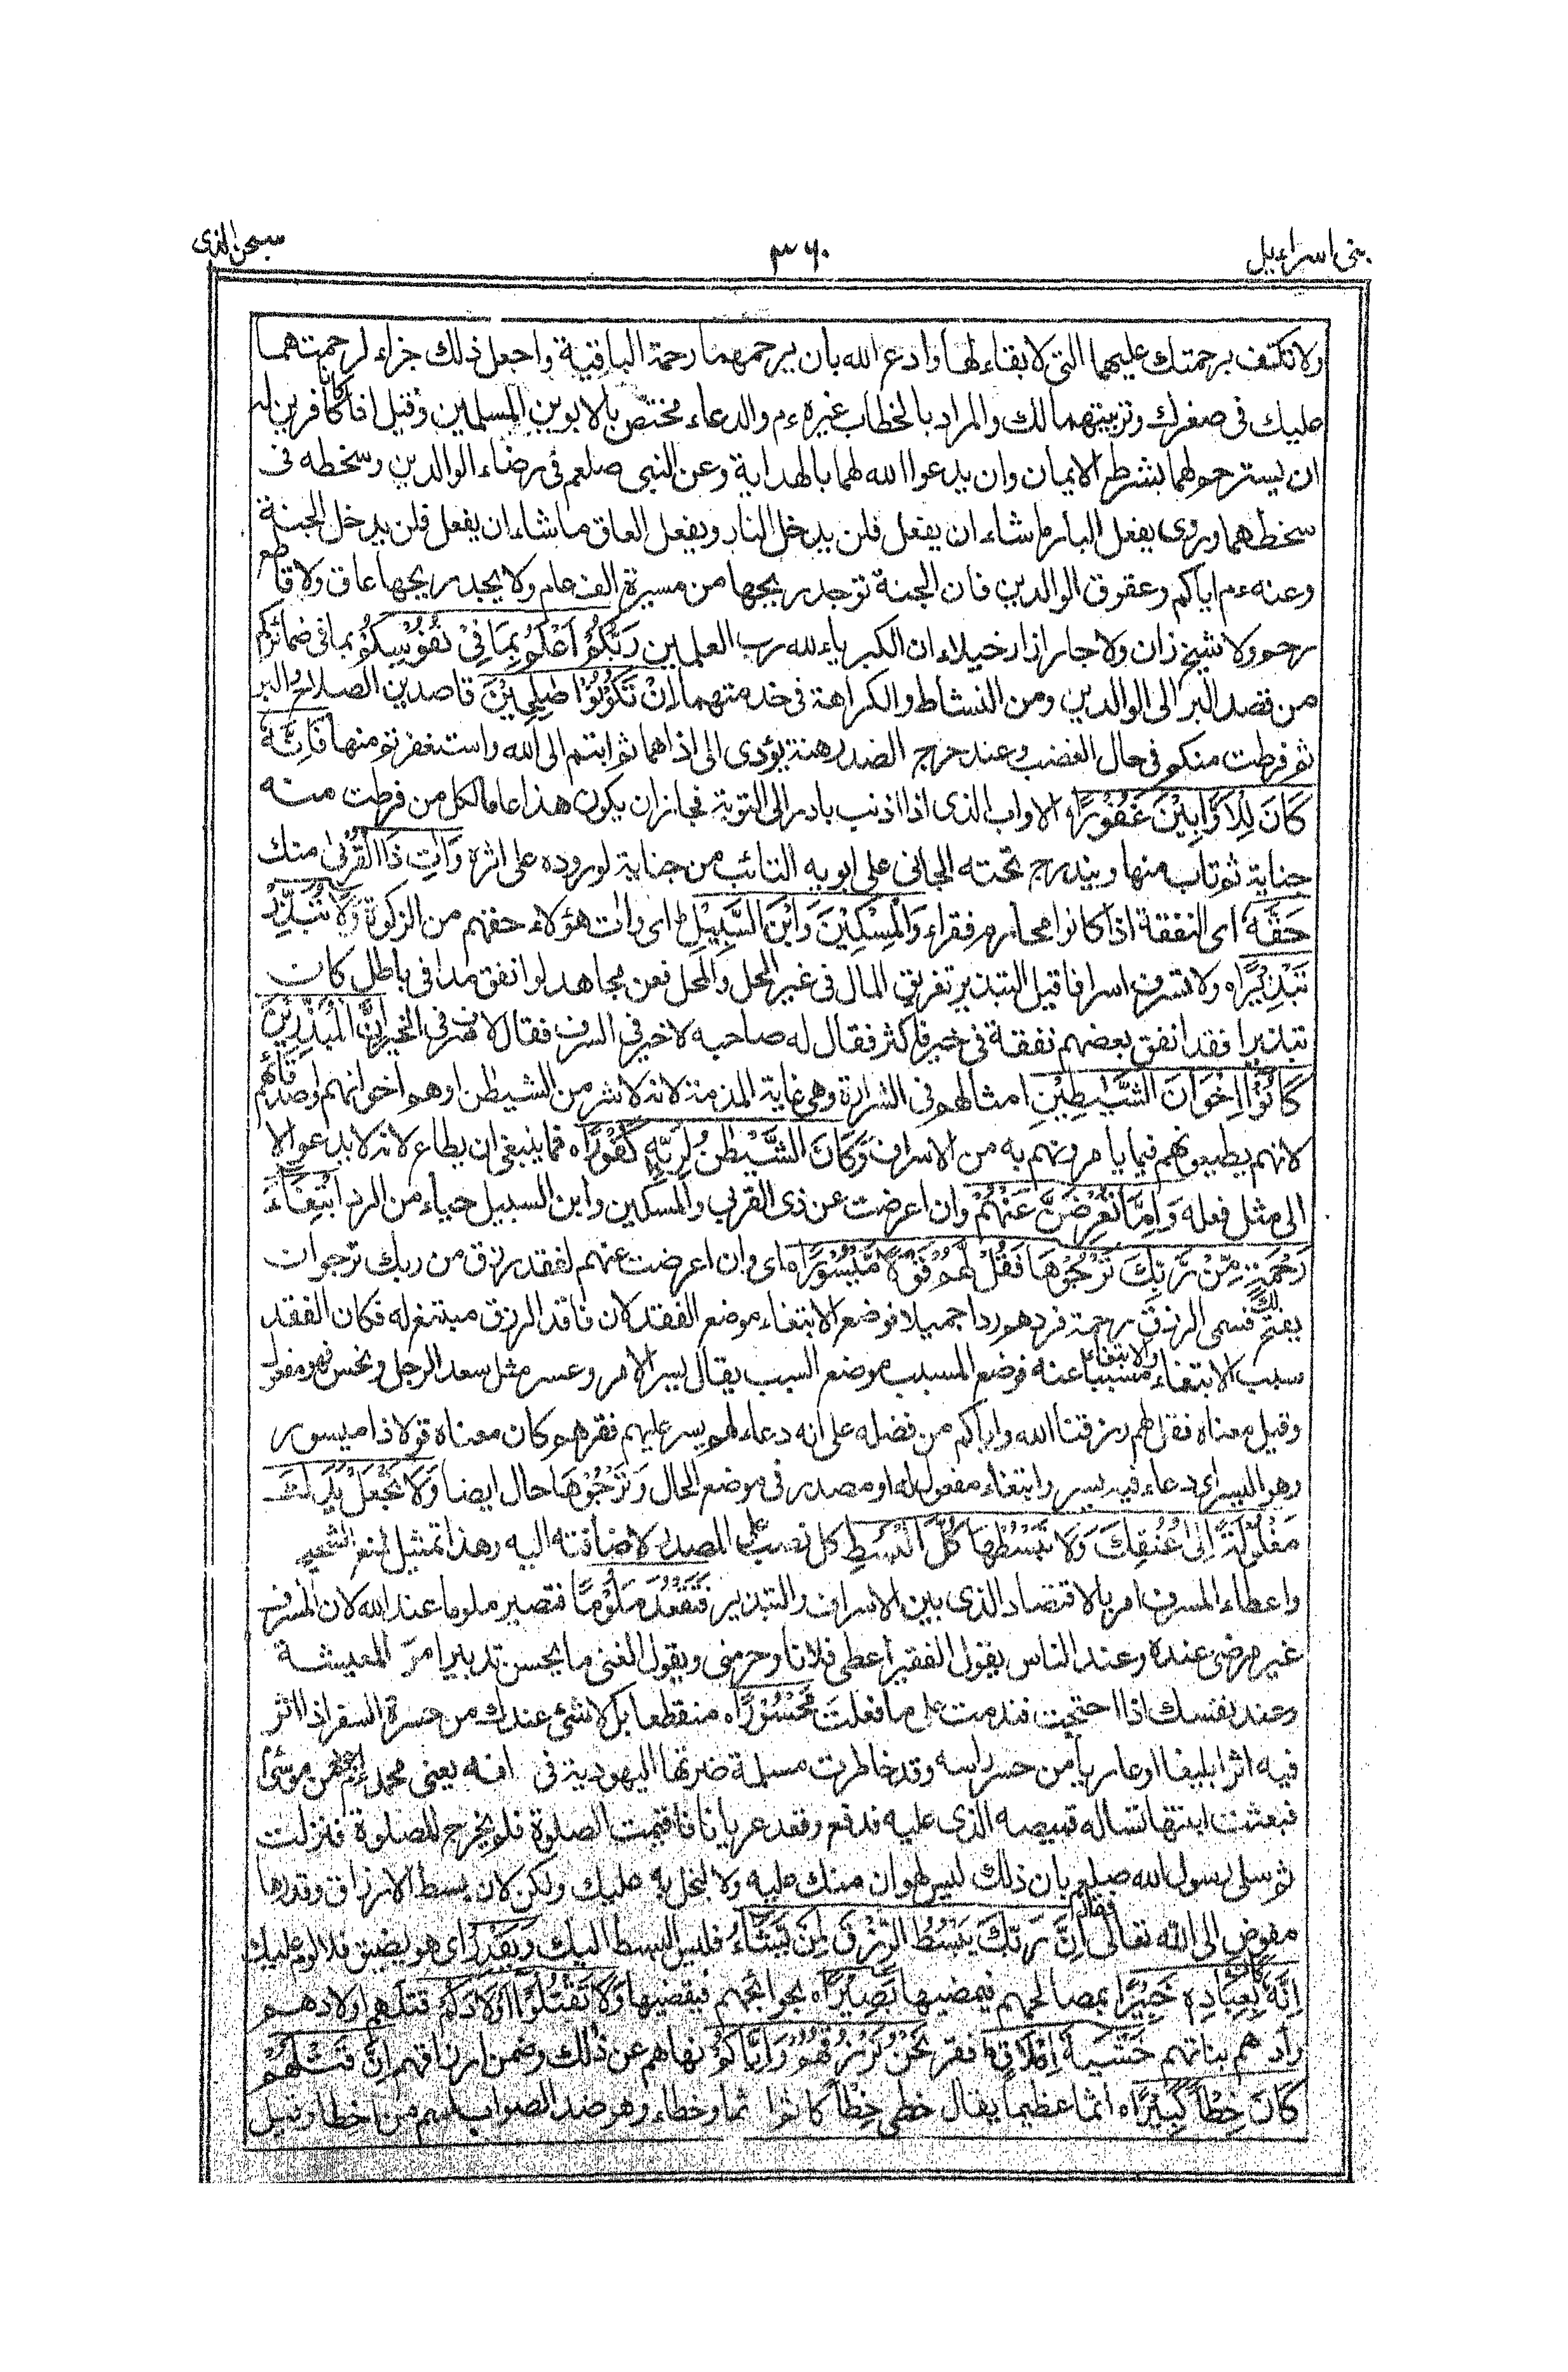 بنی اسراءیل
٣٦٠
سبحن الذی
ولا تکتف برحمتك علیهما التی لا بقاء لها وادع الله بان یرحمهما رحمة الباقیة واجعل ذلك جزاء لرحمتهما
علیك فی صغرك وتربیتهما لك والمراد بالخطاب غیره ءم والدعاء مختص بالابوین المسلمین وقیل اذا کانا کافرین له
ان یسترحم لهما بشرط الایمان وان یدعوا الله لهما بالهدایة وعن النبی صلعم فی رضاء الوالدین وسخطه فی
سخطهما وروی یفعل البار ما شاء ان یفعل فلن یدخل النار ویفعل العاق ما شاء ان یفعل فلن یدخل الجنة
وعنه ءم ایاکم وعقوق الوالدین فان الجنة توجد ریحها من مسیرة الف عام ولا یجد ریحها عاق ولا قاطع
رحم ولا شیخ زان ولا جار ازاره خیلاء ان الکبریاء لله رب العلمین رَبُّكُمْ اَعْلَمُ بِمَا فِيْ نُفُوْسِكُمْ بما فی ضمائرکم
من قصد البر الی الوالدین ومن النشاط والکراهة فی خدمتهما اِنْ تَكُوْنُوْا صٰلِحِيْنَ قاصدین الصلاح والبر
ثم فرطت منکم فی حال الغضب وعند حرج الصدر هنة یؤدی الی اذاهما ثم ابتم الی الله واستغفرتم منها فَاِنَّهٗ
كَانَ لِلْاَوَّابِيْنَ غَفُوْرًا٥ الاواب الذی اذا اذنب بادر الی التوبة فجاز ان یکون هذا عاما لکل من فرطت منه
جنایة ثم تاب منها ویندرج تحته الجانی علی ابویه التائب من جنایة لوروده علی اثره وَاٰتِ ذَا الْقُرْبٰی منك
حَقَّهٗ ای النفقة اذا کانوا محارم فقراء وَالْمِسْكِيْنَ وَابْنَ السَّبِيْلِ ای وات هؤلاء حقهم من الزکوة وَلَا تُبَذِّرْ
تَبْذِيْرًا٥ ولا تسرف اسرافا قیل التبذیر تفریق المال فی غیر الحل والمحل فعن مجاهد لو انفق مدا فی باطل کان
تبذیرا فقد انفق بعضهم نفقة فی خیر فاکثر فقال له صاحبه لا خیر فی السرف فقال لا سرف فی الخیر اِنَّ الْمُبَذِّرِيْنَ
كَانُوْا اِخْوَانَ الشَّيٰطِيْنِ امثالهم فی الشرارة وهی غایة المذمة لانه لا شر من الشیطن او هم اخوانهم واصدقائهم
لانهم یطیعونهم فیما یامرونهم به من الاسراف وَكَانَ الشَّيْطٰنُ لِرَبِّهٖ كَفُوْرًا٥ فما ینبغی ان یطاع لانه لا یدعو الا
الی مثل فعله وَاِمَّا تُعْرِضَنَّ عَنْهُمْ وان اعرضت عن ذی القربی والمسکین وابن السبیل حیاء من الرد ابْتِغَاءَ
رَحْمَةٍ مِّنْ رَّبِّكَ تَرْجُوْهَا فَقُلْ لَّهُمْ قَوْلًا مَّيْسُوْرًا٥ ای وان اعرضت عنهم لفقد رزق من ربك ترجو ان
یفتح لك فسمی الرزق رحمة فردهم ردا جمیلا فوضع الابتغاء موضع الفقد لان فاقد الرزق مبتغ له فکان الفقد
سبب الابتغاء والابتغاء مسببا عنه فوضع المسبب موضع السبب یقال یسر الامر وعسر مثل سعد الرجل ونحس فهو مفعول
وقیل معناه فقل لهم رزقنا الله وایاکم من فضله علی انه دعاء لهم یسر علیهم فقرهم کان معناه قولا ذا میسور
وهو الیسر ای دعاء فیه یسر وابتغاء مفعول له او مصدر فی موضع الحال وَتَرْجُوْهَا حال ایضا وَلَا تَجْعَلْ يَدَكَ
مَغْلُوْلَةً اِلٰی عُنُقِكَ وَلَا تَبْسُطْهَا كُلَّ الْبَسْطِ کل نصب علی المصدر لاضافته الیه وهذا تمثیل لمنع الشحیح
واعطاء المسرف امر بالاقتصاد الذی بین الاسراف والتبذیر فَتَقْعُدَ مَلُوْمًا فتصیر ملوما عند الله لان المسرف
غیر مرضی عنده وعند الناس یقول الفقیر اعطی فلانا وحرمنی ویقول الغنی ما یحسن تدبیر امر المعیشة
وعند نفسك اذا احتجت فندمت علی ما فعلت مَّحْسُوْرًا٥ منقطعا بك لا شیء عندك من حسرة السفر اذا اثر
فیه اثرا بلیغا او عاریا من حسر راسه وقد خاطرت مسلمة ضرتها الیهودیة فی انه یعنی محمد ءم اجود من موسی
فبعثت ابنتها تساله قمیصه الذی علیه فدفع وقعد عریانا فاقیمت الصلوة فلم یخرج للصلوة فنزلت
ثم سلی رسول الله صلعم بان ذلك لیس لهوان منك علیه ولا لبخل به علیك ولکن لان بسط الارزاق وقدرها
مفوض الی الله تعالی فقال اِنَّ رَبَّكَ يَبْسُطُ الرِّزْقَ لِمَنْ يَّشَاءُ فلیس البسط الیك وَيَقْدِرُ ای هو یضیق فلا لوم علیك
اِنَّهٗ كَانَ بِعِبَادِهٖ خَبِيْرًا بمصالحهم فیمضیها بَصِيْرًا٥ بحوائجهم فیقضیها وَلَا تَقْتُلُوْا اَوْلَادَكُمْ قتلهم اولادهم
وأدهم بناتهم خَشْيَةَ اِمْلَاقٍ فقر نَحْنُ نَرْزُقُهُمْ وَاِيَّاكُمْ نهاهم عن ذلك وضمن ارزاقهم اِنَّ قَتْلَهُمْ
كَانَ خِطْأً كَبِيْرًا٥ اثما عظیما یقال خطی خِطْأً کاثم اثما وخطاء وهو ضد الصواب اسم من اخطا وقیل